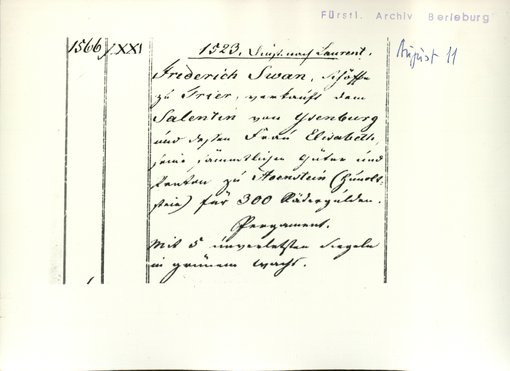 Fürstl. Archiv Berleburg
1566 XXI 1523. Dinst. nach Laurent. August 11
Frederich Swan, Schöffe
zu Trier, verkauft dem
Salentin von Ysenburg
und dessen Frau Elisabeth
seine sämmtlichen Güter und
Renten zu (Hunolt-
stein) für 300 Rädergulden.
Pergament.
Mit 5 unverletzten Siegeln
in grünem Wachs.